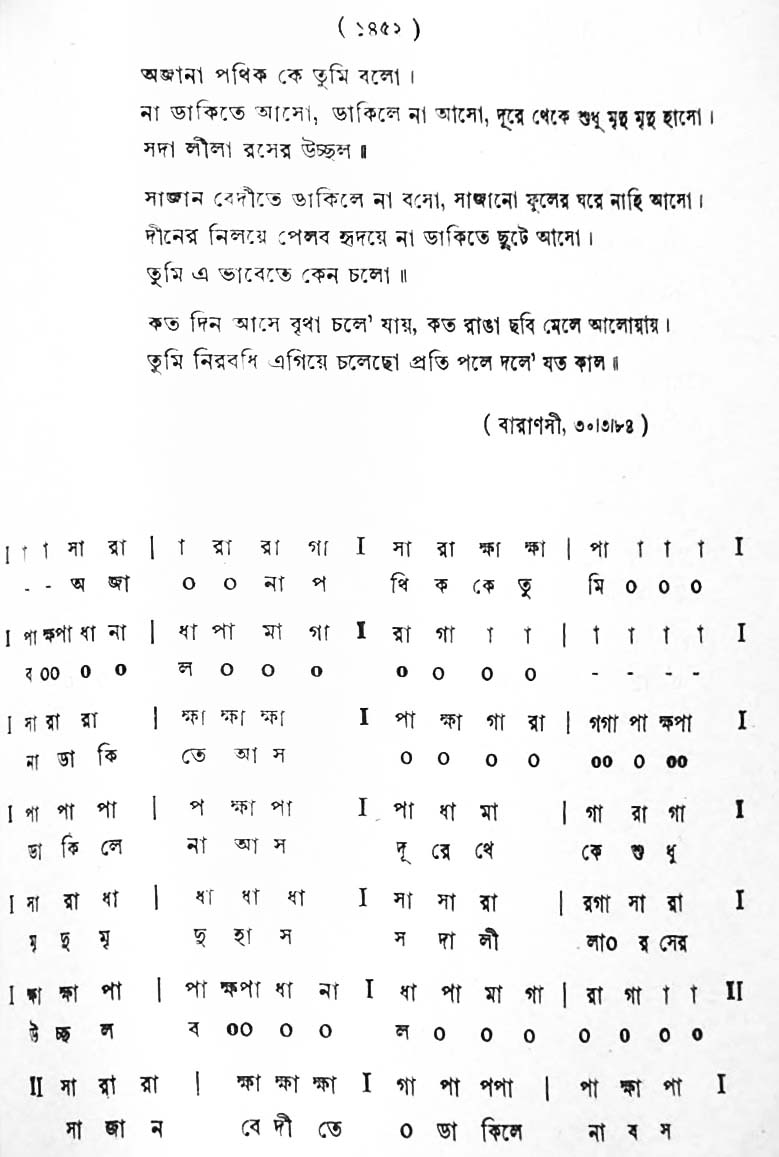 ( ১৪৫২ )
অজানা পথিক কে তুমি বলো ।
না ডাকিতে আসো, ডাকিলে না আসো, দূরে থেকে শুধু মৃদু মৃদু হাসো ।
সদা লীলা রসের উচ্ছল ॥
সাজান বেদীতে ডাকিলে না বসো, সাজানো ফুলের ঘরে নাহি আসো ।
দীনের নিলয়ে পেলব হৃদয়ে না ডাকিতে ছুটে আসো ।
তুমি এ ভাবেতে কেন চলো ॥
কত দিন আসে বৃথা চলে' যায়, কত রাঙা ছবি মেলে আলোয়ায় ।
তুমি নিরবধি এগিয়ে চলেছো প্রতি পলে দলে' যত কাল ॥
( বারাণসী, ৩০।৩।৮৪ )
I া া সা রা | া রা রা গা I সা রা ক্ষা ক্ষা | পা া া া I
- - অ জা ০ ০ না প থি ক কে তু মি ০ ০ ০
I পা ক্ষপা ধা না | ধা পা মা গা I রা গা া া | া া া া I
ব ০০ ০ ০ ল ০ ০ ০ ০ ০ ০ ০ - - - -
I সা রা রা | ক্ষা ক্ষা ক্ষা I পা ক্ষা গা রা | গগা পা ক্ষপা I
না ডা কি তে আ স ০ ০ ০ ০ ০০ ০ ০০
I পা পা পা | প ক্ষা পা I পা ধা মা | গা রা গা I
ডা কি লে না আ স দূ রে থে কে শু ধু
I সা রা ধা | ধা ধা ধা I সা সা রা | রগা সা রা I
মৃ দু মৃ দু হা স স দা লী লা০ র সের
I ক্ষা ক্ষা পা | পা ক্ষপা ধা না I ধা পা মা গা | রা গা া া II
উ চ্ছ ল ব ০০ ০ ০ ল ০ ০ ০ ০ ০ ০ ০
II সা রা রা | ক্ষা ক্ষা ক্ষা I গা পা পপা | পা ক্ষা পা I
সা জা ন বে দী তে ০ ডা কিলে না ব স